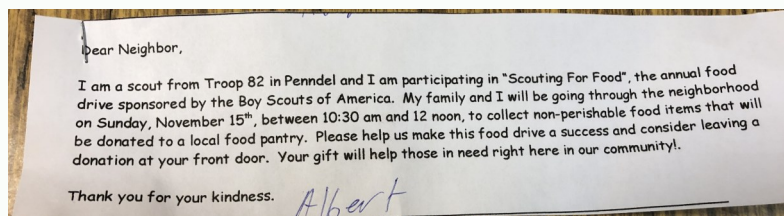 Dear Neighbor,
I am a scout from Troop 82 in Penndel and I am participating in "Scouting For Food", the annual food
drive sponsored by the Boy Scouts of America.  My family and I will be going through the neighborhood
on Sunday, November 15th, between 10:30 am and 12 noon, to collect non-perishable food items that will
be donated to a local food pantry.  Please help us make this food drive a success and consider leaving a
donation at your front door.  Your gift will help those in need right here in our community!.
Thank you for your kindness.
Albert